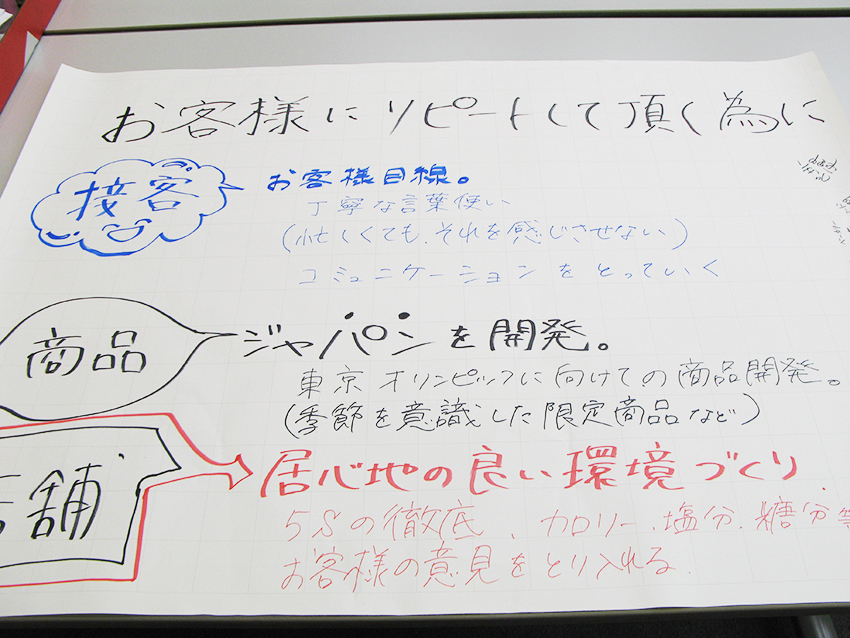 お客様にリピートして頂く為に
接客
お客様目線。
丁寧な言葉使い
(忙しくても、それを感じさせない)
コミュニケーションをとっていく
商品
ジャパンを開発。
東京オリンピックに向けての商品開発。
(季節を意識した限定商品など)
店舗
居心地の良い環境づくり
5Sの徹底、カロリー、塩分、糖分等
お客様の意見をとり入れる